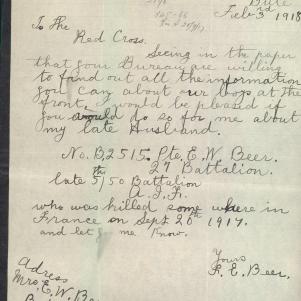 Date
Feb 3rd 1918
To The
Red Cross.
Seeing in the paper
that your Bureau are willing
to find out all the information
you can about our boys at the
front, I would be pleased if
you would do so for me about
my late Husband.
No. B2515. Pte. E. W. Beer.
27 Battalion.
late 5th/50 Battalion
A. I. F.
who was killed some where in
France on Sept 20th 1917.
and let me know.
Yours
F. E. Beer.
Adress
Mrs. E. W. Be